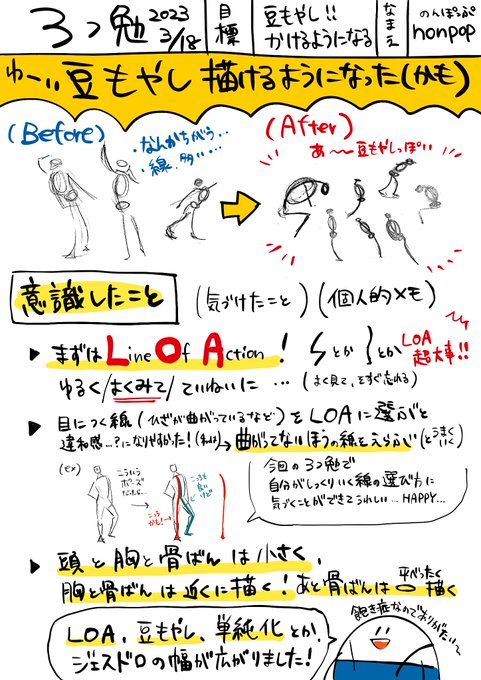 3つ勉 2023 3/18 目標 豆もやし!! かけるようになる なまえ のんぽっぷ honpop
わーい豆もやし描けるようになった(かも)
(Before)
なんかちがう...
線、多い...
(After)
あ〜豆もやしっぽい
意識したこと (気づけたこと) (個人的メモ)
▶ まずは Line Of Action! とか とか LOA 超大事!!
ゆるく/よくみて/ていねいに … (よく見て、をすぐ忘れる)
▶ 目につく線(ひざが曲がっているなど)をLOAに選ぶと
違和感…?になりやすかった!(私は)→曲がってないほうの線をえらぶ(とうまくいく)
(ex)
こういうポーズだったら…
こっちかも!→
こっちも良いけど
今回の3つ勉で
自分がしっくりいく線の選び方に
気づくことができてうれしい…HAPPY…
▶ 頭と胸と骨ばんは小さく、
胸と骨ばんは近くに描く!あと骨ばんは平べったく描く
LOA、豆もやし、単純化とか、
ジェスドロの幅が広がりました!
飽き症なのでありがたい〜